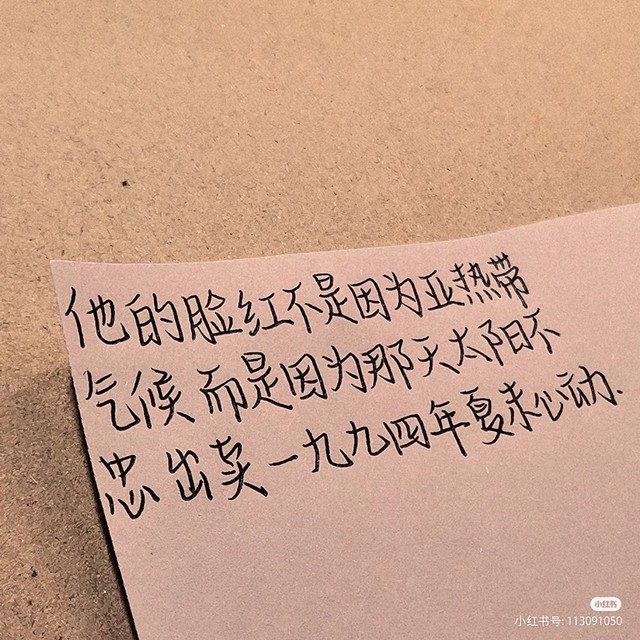 他的脸红不是因为亚热带
气候而是因为那天太阳不
忠出卖一九九四年夏末心动.
小红书
小红书号: 113091050